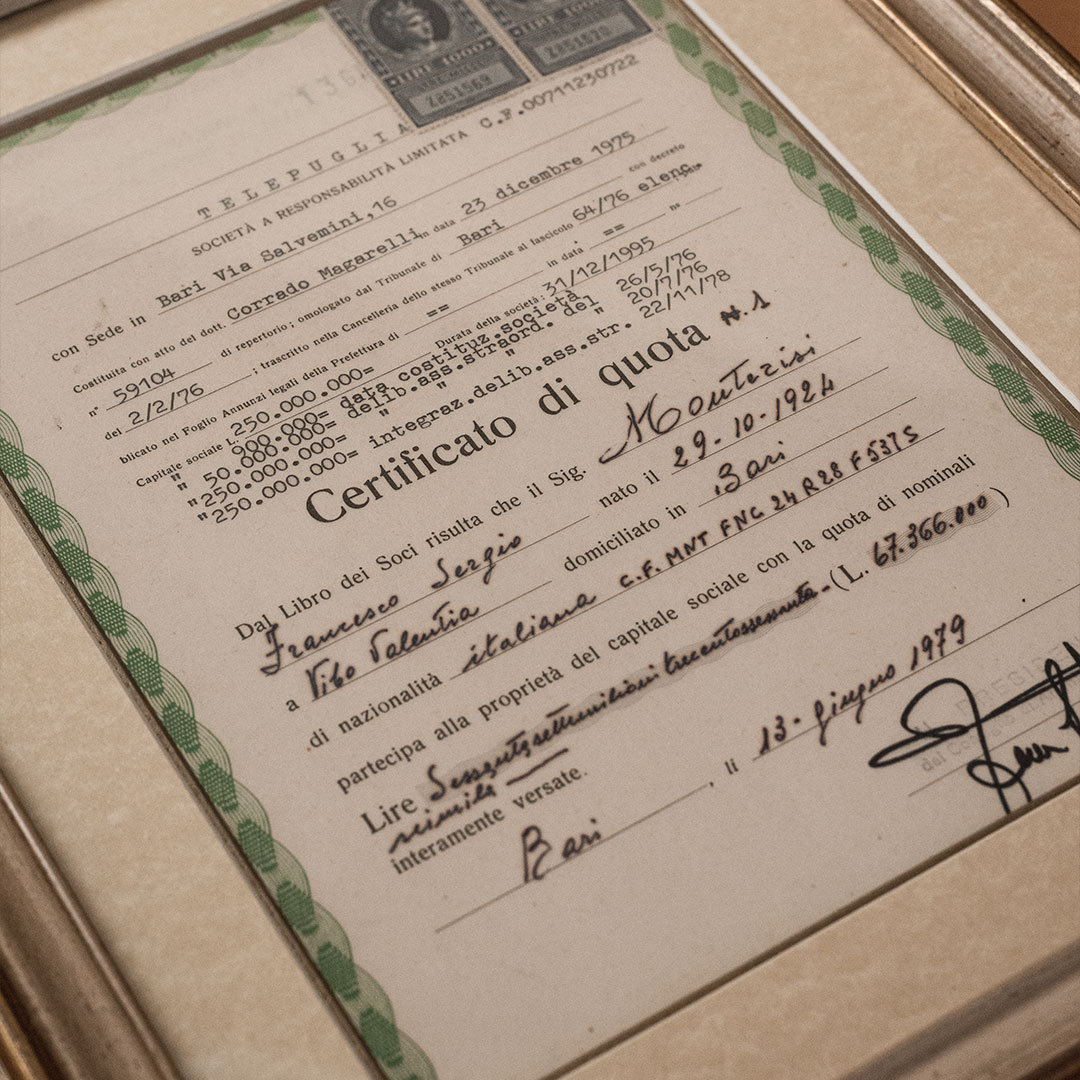 LIRE 1000 LIRE 1000
Z851569 Z851570
136
TELEPUGLIA
SOCIETÀ A RESPONSABILITÀ LIMITATA C.F.00711230722
con Sede in Bari Via Salvemini,16
Costituita con atto del dott. Corrado Magarelli in data 23 dicembre 1975
n° 59104 di repertorio; omologato dal Tribunale di Bari con decreto
del 2/2/76 ; trascritto nella Cancelleria dello stesso Tribunale al fascicolo 64/76 elenc.
blicato nel Foglio Annunzi legali della Prefettura di == in data == n°
Capitale sociale L. 250.000.000= Durata della società: 31/12/1995
" 900.000= data costituz.società 26/5/76
" 50.000.000= delib.ass.straord. del 20/7/76
"250.000.000= " " " " 22/11/78
"250.000.000= integraz.delib.ass.str.
Certificato di quota N.1
Dal Libro dei Soci risulta che il Sig. Monterisi
Francesco Sergio nato il 29-10-1924
a Vibo Valentia domiciliato in Bari
di nazionalità italiana C.F. MNT FNC 24 R 28 F 537 S
partecipa alla proprietà del capitale sociale con la quota di nominali
Lire Sessantasettemilionitrecentosessanta- (L. 67.366.000)
seimila
interamente versate.
Bari , lì 13- giugno 1979